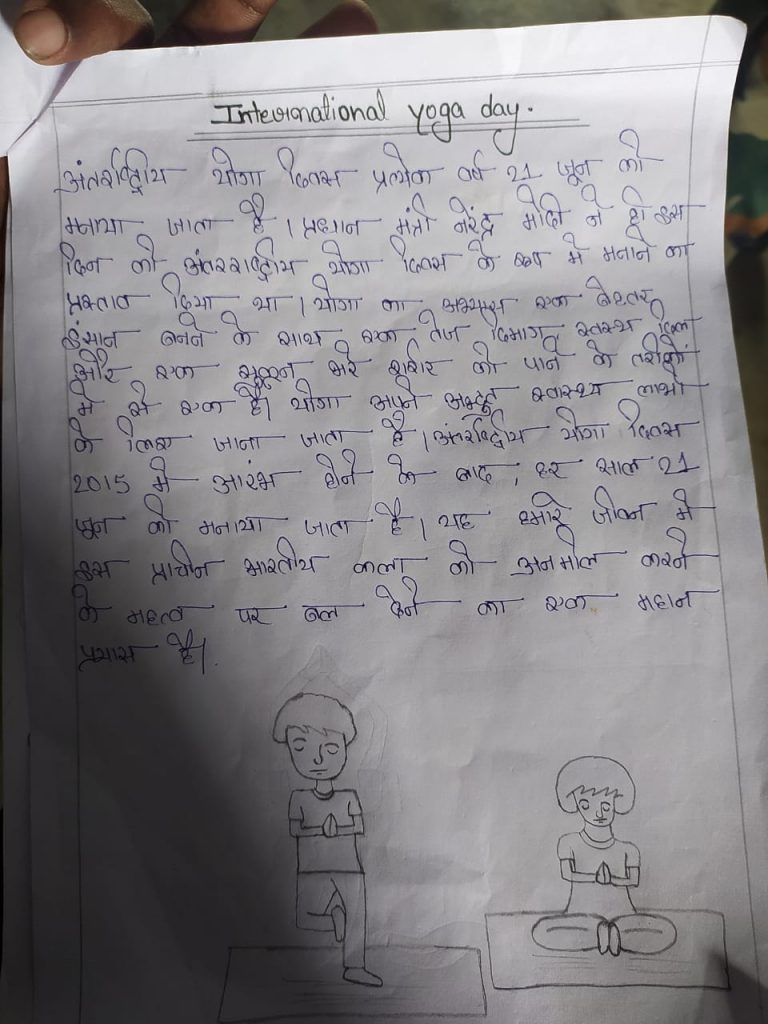 International yoga day.
अंतर्राष्ट्रीय योगा दिवस प्रत्येक वर्ष 21 जून को
मनाया जाता है। प्रधान मंत्री नरेंद्र मोदी ने ही इस
दिन को अंतरराष्ट्रीय योगा दिवस के रूप में मनाने का
प्रस्ताव दिया था। योगा का अभ्यास एक बेहतर
इंसान बनने के साथ एक तेज दिमाग, स्वस्थ दिल
और एक सुकून भरे शरीर को पाने के तरीकों
में से एक है। योगा अपने अद्भुत स्वास्थ्य लाभों
के लिए जाना जाता है। अंतर्राष्ट्रीय योगा दिवस
2015 में आरंभ होने के बाद, हर साल 21
जून को मनाया जाता है। यह हमारे जीवन में
इस प्राचीन भारतीय कला को अनमोल करने
के महत्व पर बल देने का एक महान
प्रयास है।